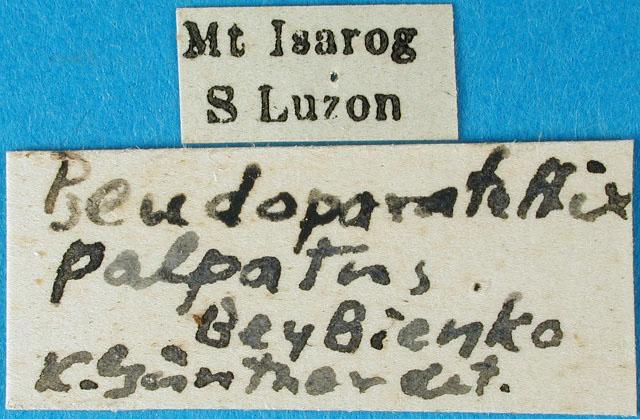 Mt Isarog
S Luzon
Pseudoparatettix
palpatus
Bey Bienko
K. Günther det.